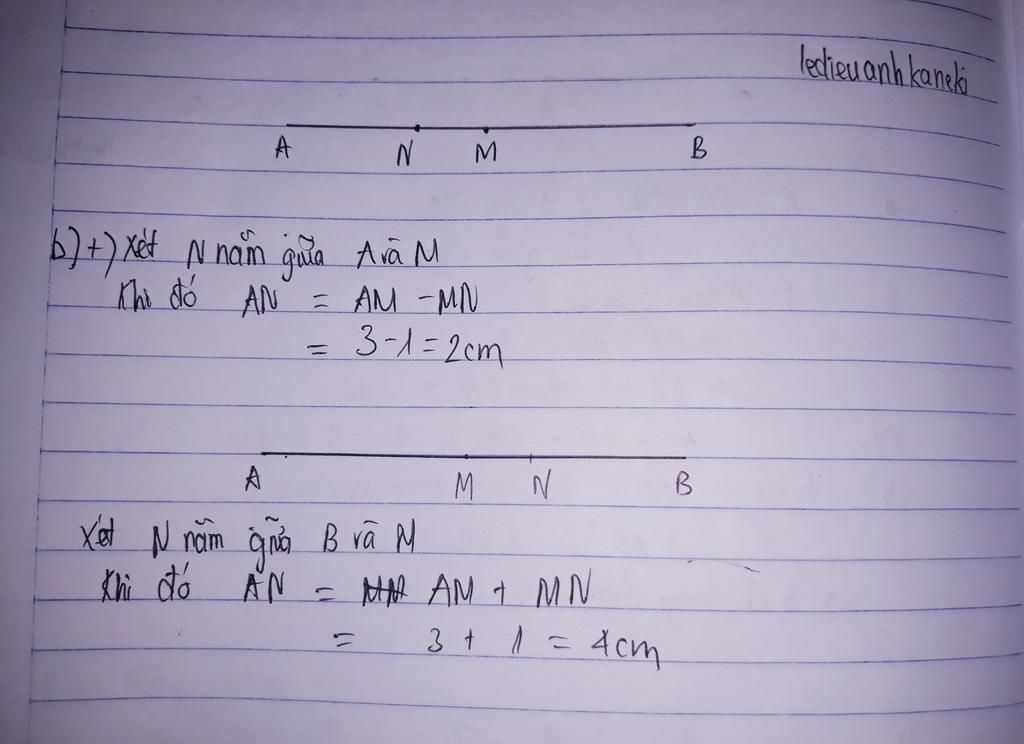 ledieuanhkaneki
A N M B
b) +) Xét N nằm giữa A và M
Khi đó AN = AM - MN
= 3 - 1 = 2cm
A M N B
Xét N nằm giữa B và M
Khi đó AN = AM + MN
= 3 + 1 = 4cm